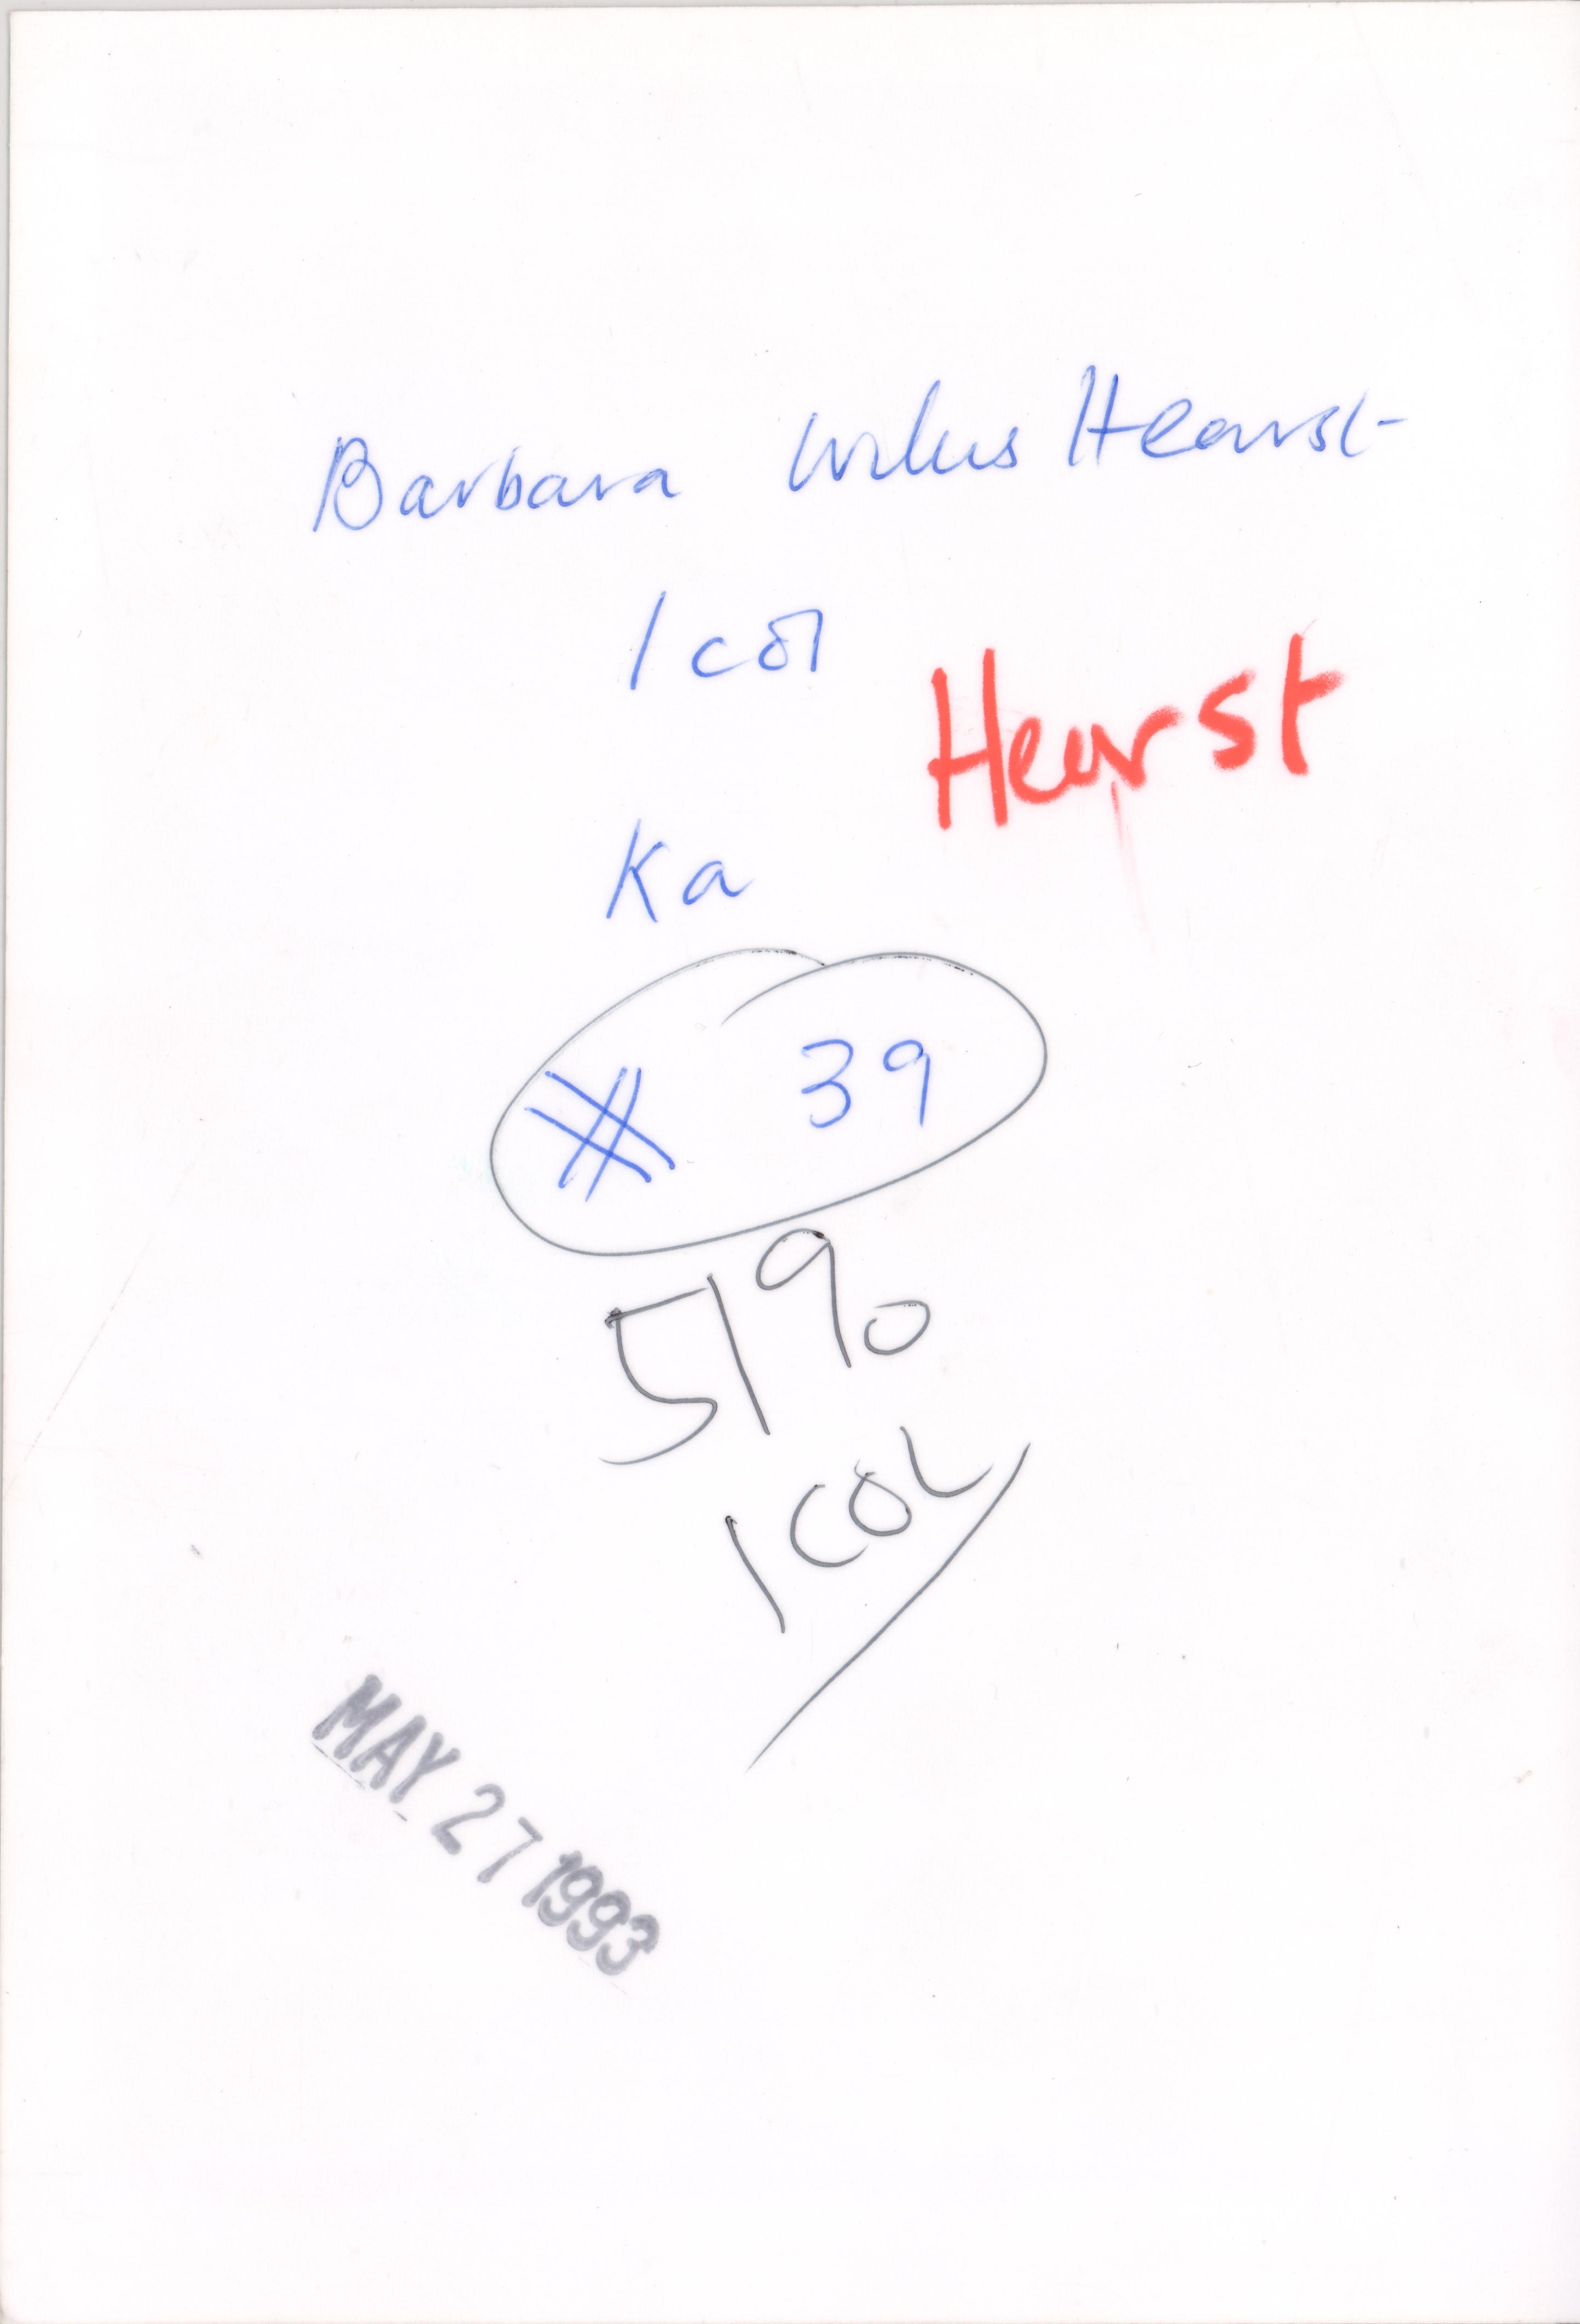 Barbara Wilus Hearst
1 col
Hearst
Ka
# 39
51%
1 COL
MAY 27 1993